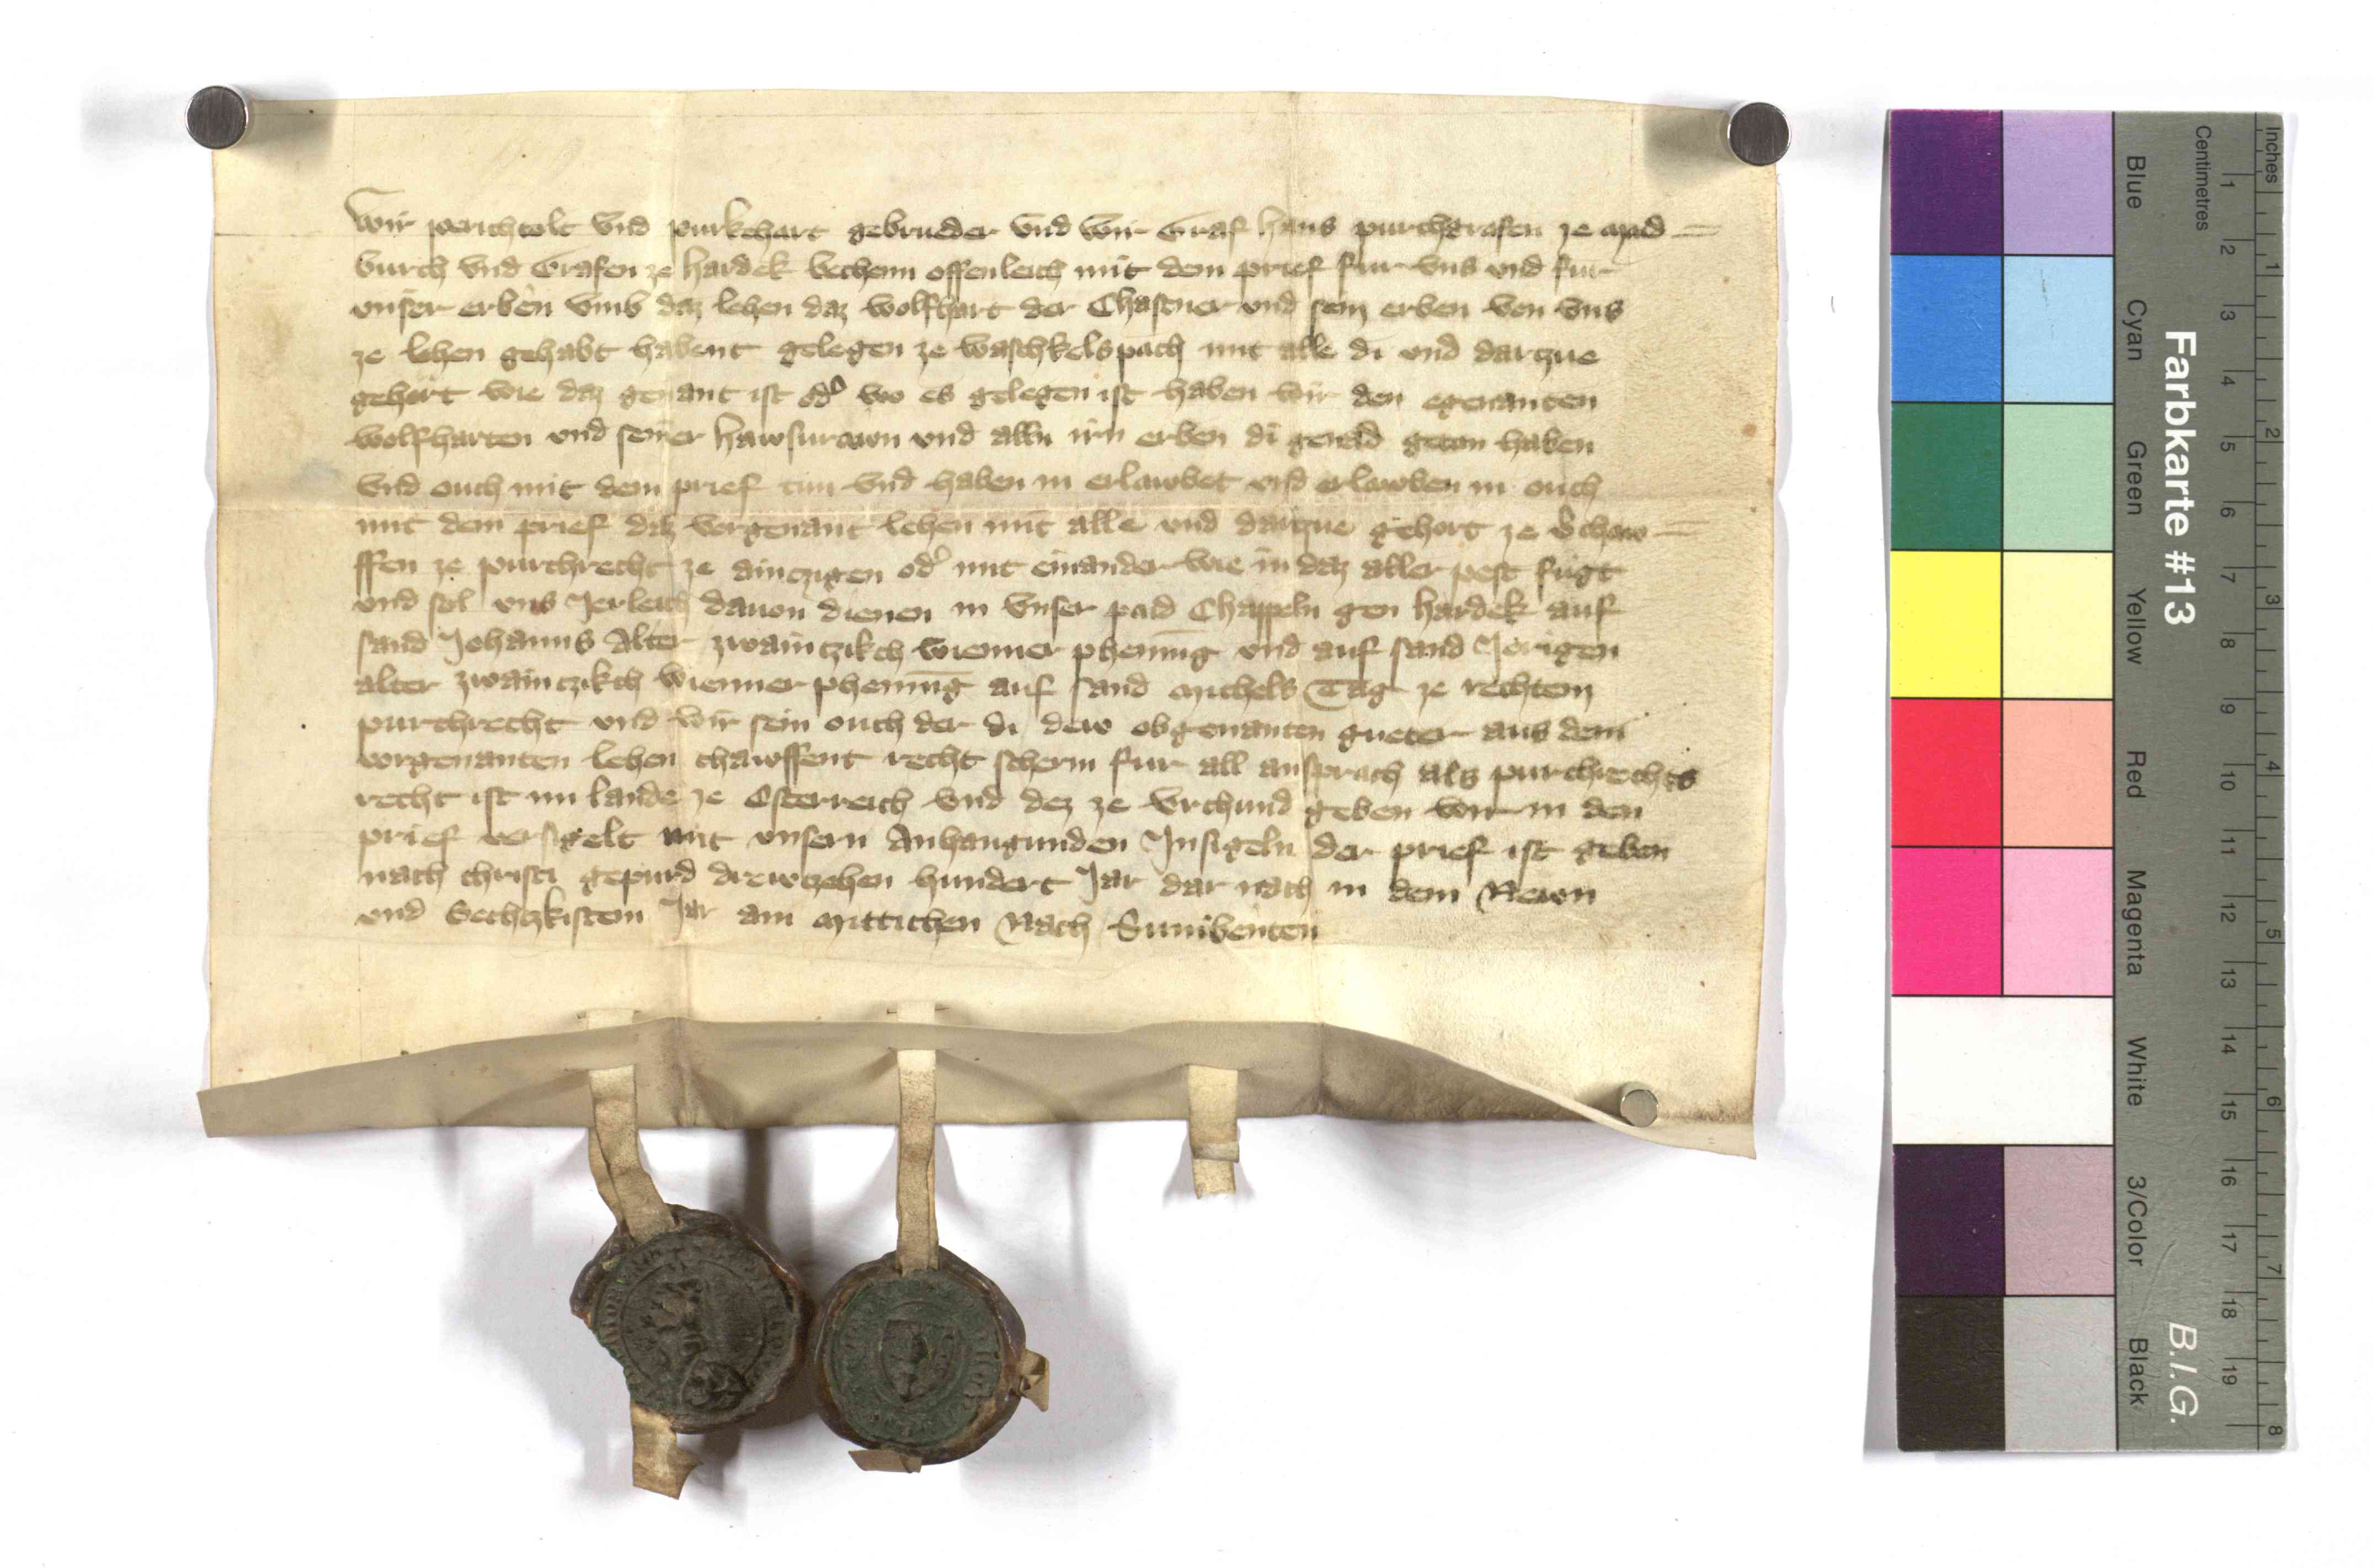 Wir perichtolt vnd purkchart gebrueder vnd wir Graf hans purchgrafen ze Mad
burch vnd Grafen ze hardek bechenn offenleich mit dem prief fur vns vnd fur
vnser erben vmb daz lehen daz wolfhart der Chastner vnd sein erben von vns
ze lehen gehabt habent gelegen ze waschkelspach mit alle di vnd darzue
gehort wie daz genant ist od' wo es gelegen ist haben wir den egenanten
wolfharten vnd seiner hawsurown vnd alln irn erben di genad getan haben
vnd ouch mit dem prief tun vnd haben in erlawbet vnd erlawben in ouch
mit dem prief daz vorgenant lehen mit alle vnd darzue gehort ze v'chaw
ffen ze purchrecht ze ainczigen od' mit einander wie in daz aller pest fugt
vnd sol vns Jerleich dauon dienen in vnser pad Chappeln gen hardek auf
sand Johanns Alter zwainczikch wienner phening vnd auf sand Jorigen
alter zwainczikch wienner phening auf sand Michels Tag ze rechtem
purchrecht vnd wir sein ouch der di dew obgenanten gueter aus dem
vorgenanten lehen chawffent recht scherm fur all ansprach als purchrechts
recht ist im lande ze Osterreich vnd dez ze vrchund geben wir in den
prief versigelt mit vnsern Anhangunden Insigeln der prief ist geben
nach christi gepurd drewzehen hundert Jar dar nach in dem Newn
vnd Sechczkistem Jar am Mittichen Nach Sunibenten
Farbkarte #13
B.I.G.
Blue Cyan Green Yellow Red Magenta White 3/Color Black
Centimetres 1 2 3 4 5 6 7 8 9 10 11 12 13 14 15 16 17 18 19
Inches 1 2 3 4 5 6 7 8